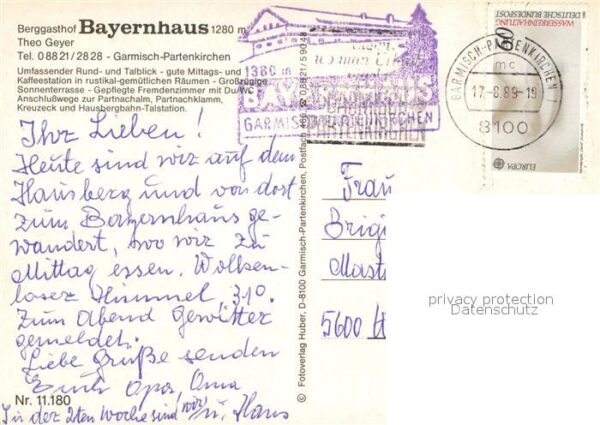 Berggasthof Bayernhaus 1280 m
Theo Geyer
Tel. 0 88 21 / 28 28 - Garmisch-Partenkirchen
Umfassender Rund- und Talblick - gute Mittags- und
Kaffeestation in rustikal-gemütlichen Räumen - Großzügige
Sonnenterrasse - Gepflegte Fremdenzimmer mit Du/WC
Anschlußwege zur Partnachalm, Partnachklamm,
Kreuzeck und Hausbergbahn-Talstation.
Ihr Lieben!
Heute sind wir auf dem
Hausberg und von dort
zum Bayernhaus ge-
wandert, wo wir zu
Mittag essen. Wolken-
loser Himmel, 31°.
Zum Abend Gewitter
gemeldet.
Liebe Grüße senden
Opa, Oma
Nr. 11.180
In der 2ten Woche sind wir
Hans
1280 m
BAYERNHAUS
GARMISCH-PARTENKIRCHEN
© Fotoverlag Huber, D-8100 Garmisch-Partenkirchen, Postfach 466 ☎ 0 88 21 / 5 90 48
GARMISCH-PARTENKIRCHEN 1
mc
17.-8.89-18
8100
60
WASSERREINHALTUNG
DEUTSCHE BUNDESPOST
EUROPA
Frau
Brigi
Mast
5600
privacy protection
Datenschutz